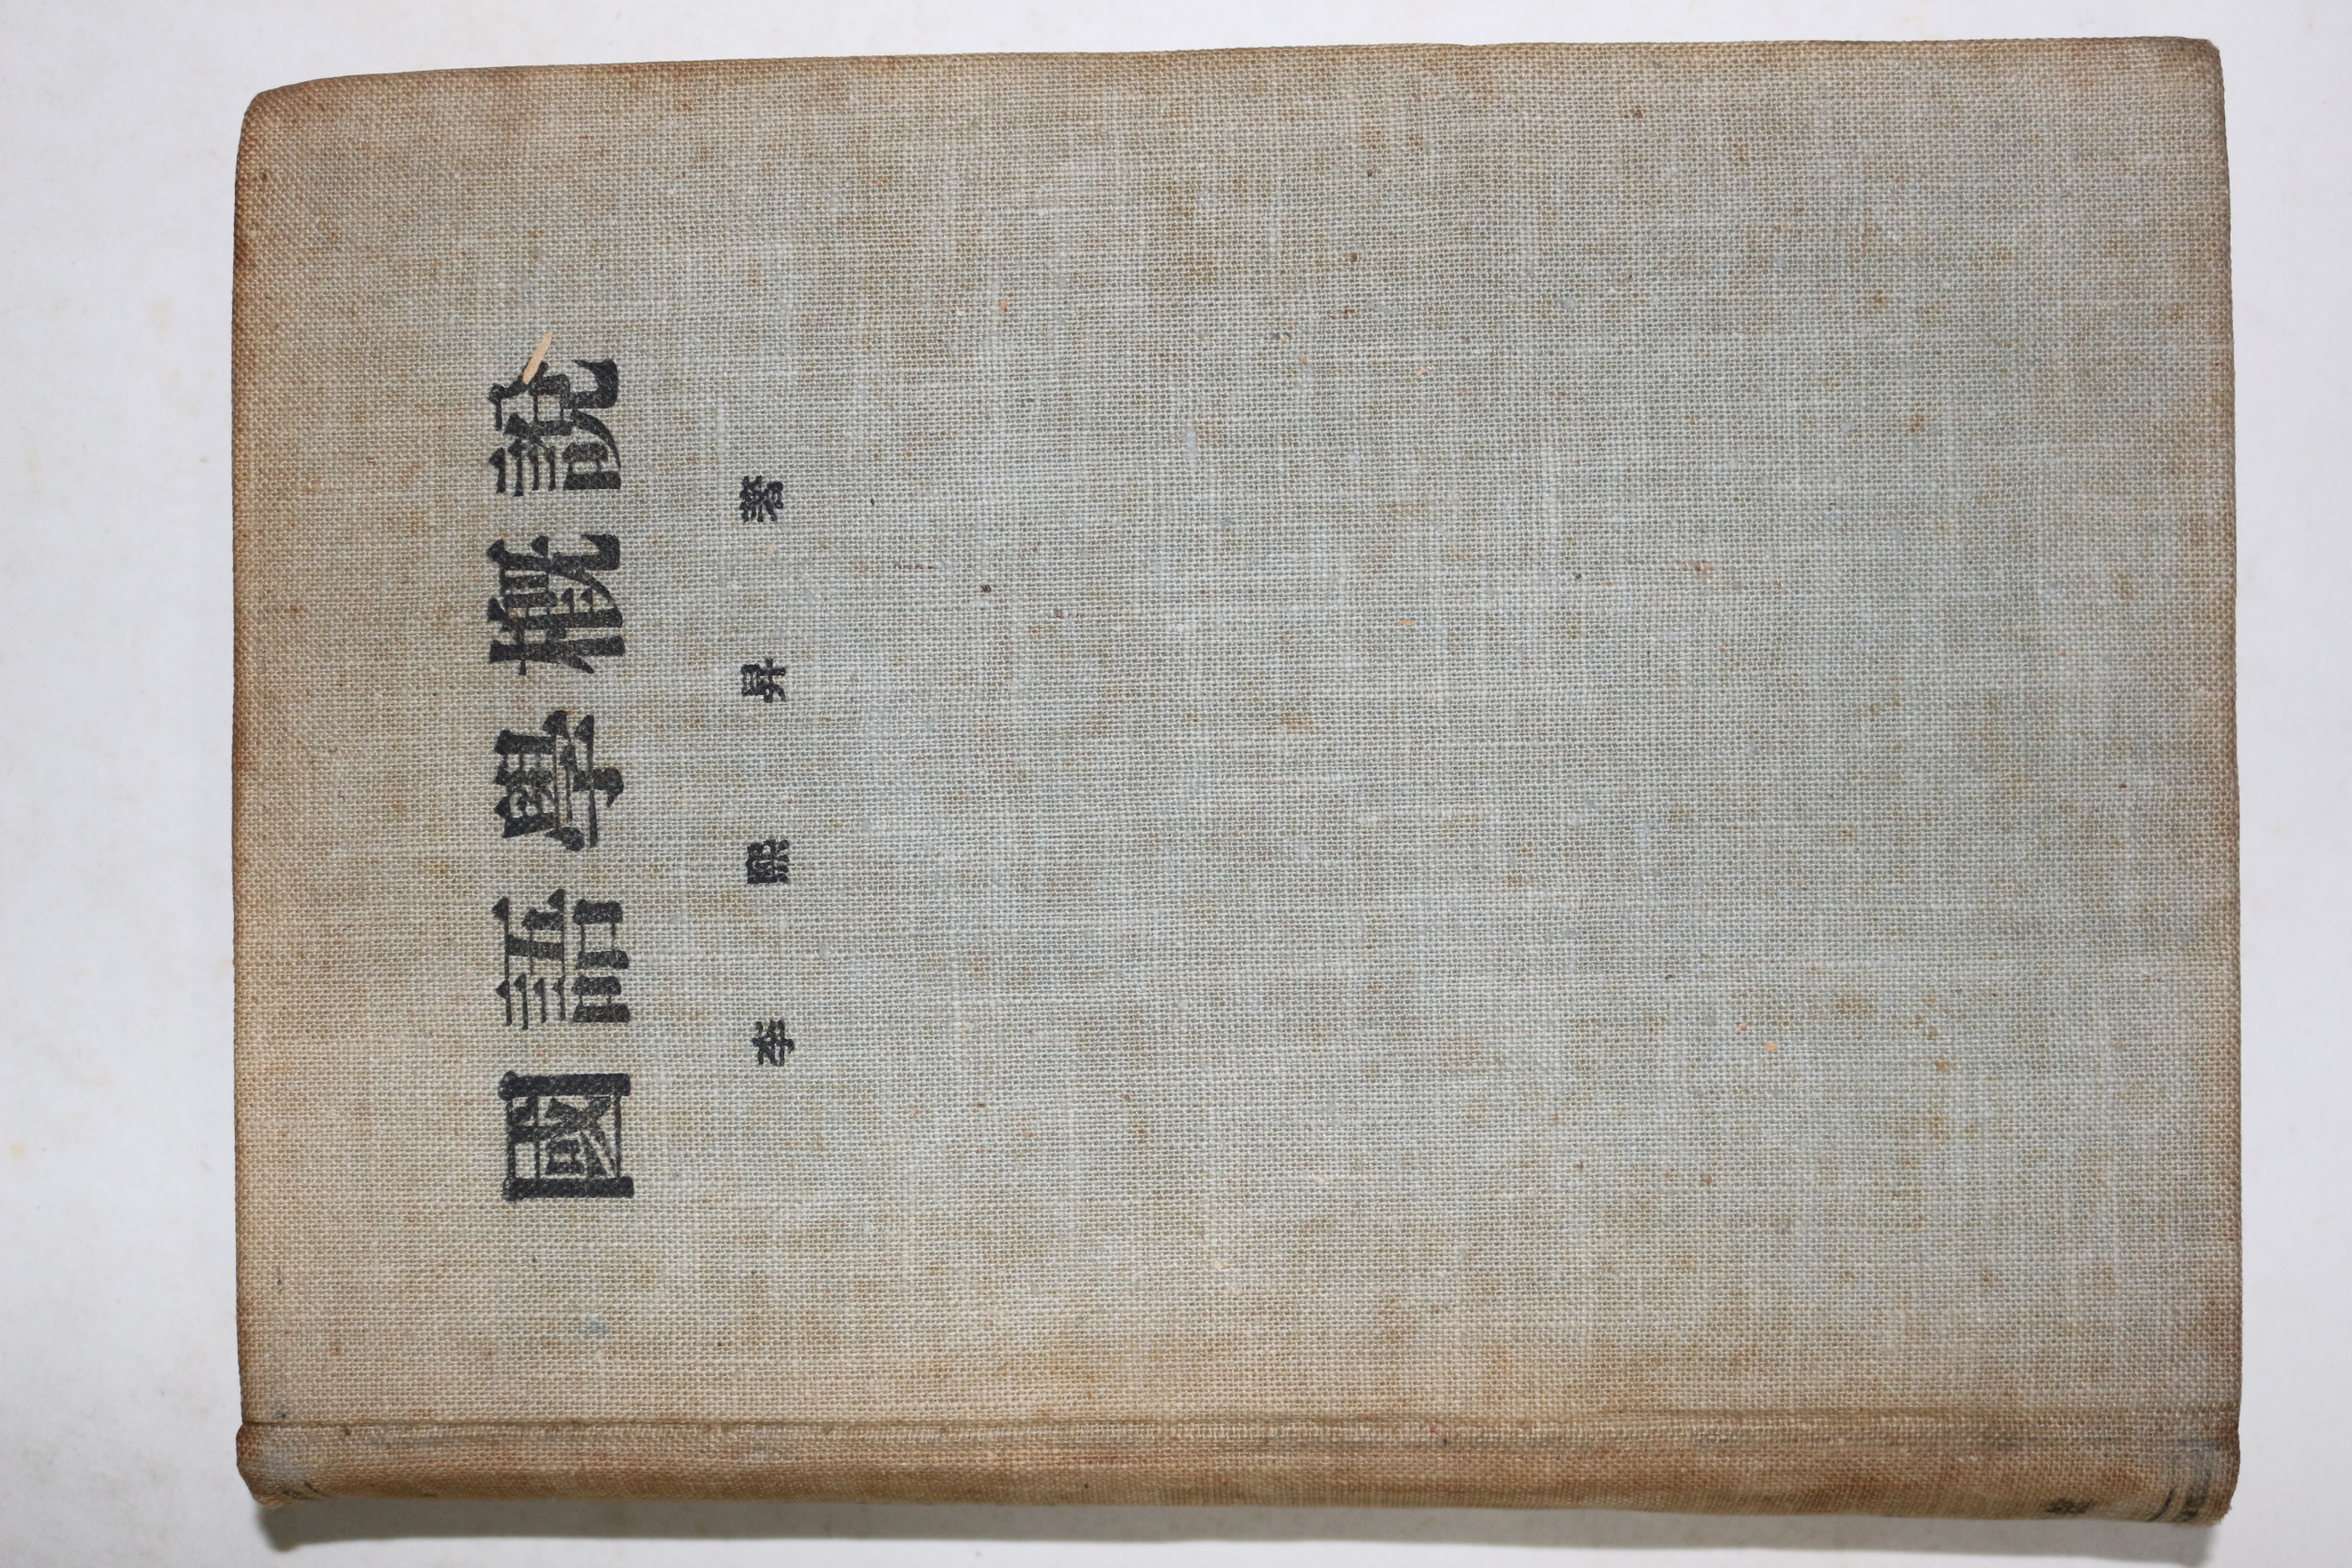 國語學概說
李熙昇著